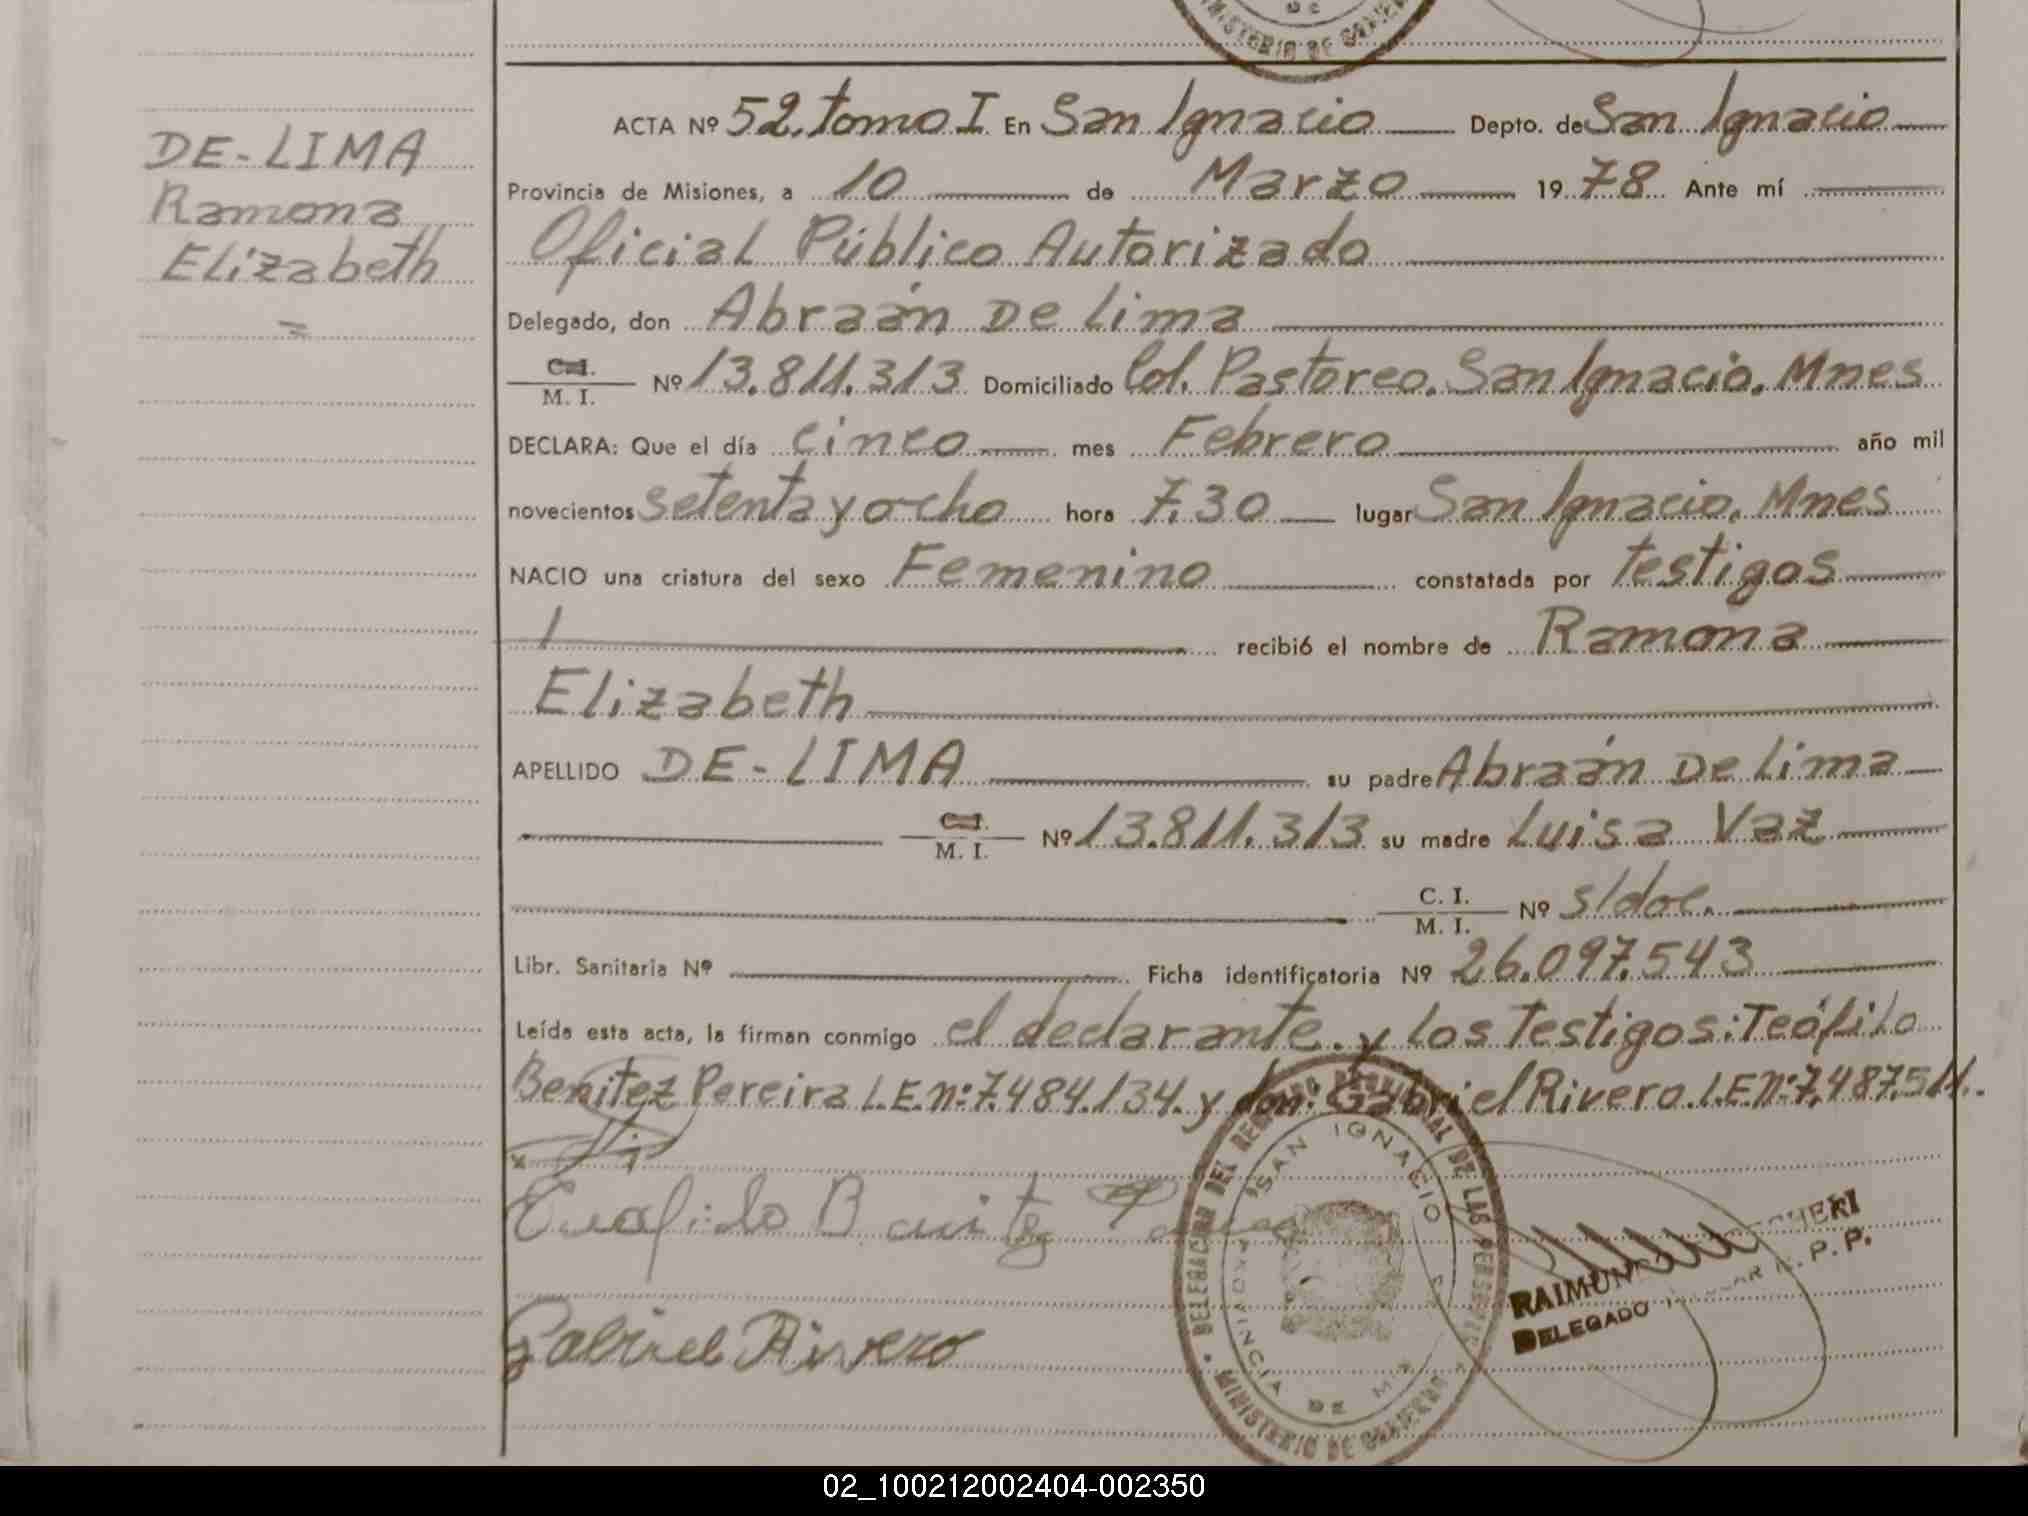 MINISTERIO DE GOBIERNO
DE
DE-LIMA
Ramona
Elizabeth
=
ACTA Nº 52. tomo I En San Ignacio Depto. de San Ignacio
Provincia de Misiones, a 10 de Marzo 1978 Ante mí
Oficial Público Autorizado
Delegado, don Abraán De Lima
C.I.
M. I. Nº 13.811.313 Domiciliado Col. Pastoreo. San Ignacio. Mnes
DECLARA: Que el día cinco mes Febrero año mil
novecientos setenta y ocho hora 7.30 lugar San Ignacio. Mnes
NACIO una criatura del sexo Femenino constatada por testigos
recibió el nombre de Ramona
Elizabeth
APELLIDO DE-LIMA su padre Abraán De Lima
C.I.
M. I. Nº 13.811.313 su madre Luisa Vaz
C. I.
M. I. Nº s/doc.
Libr. Sanitaria Nº Ficha identificatoria Nº 26.097.543
Leída esta acta, la firman conmigo el declarante. y los testigos: Teófilo
Benitez Pereira L.E.nº: 7.484.134. y don: Gabriel Rivero. L.E nº: 7.487.511.
DELEGACION DEL REGISTRO PROVINCIAL DE LAS PERSONAS
SAN IGNACIO
PROVINCIA DE
MINISTERIO DE GOBIERNO
Benitez
Gabriel Rivero
DELEGADO P. P.
02_100212002404-002350